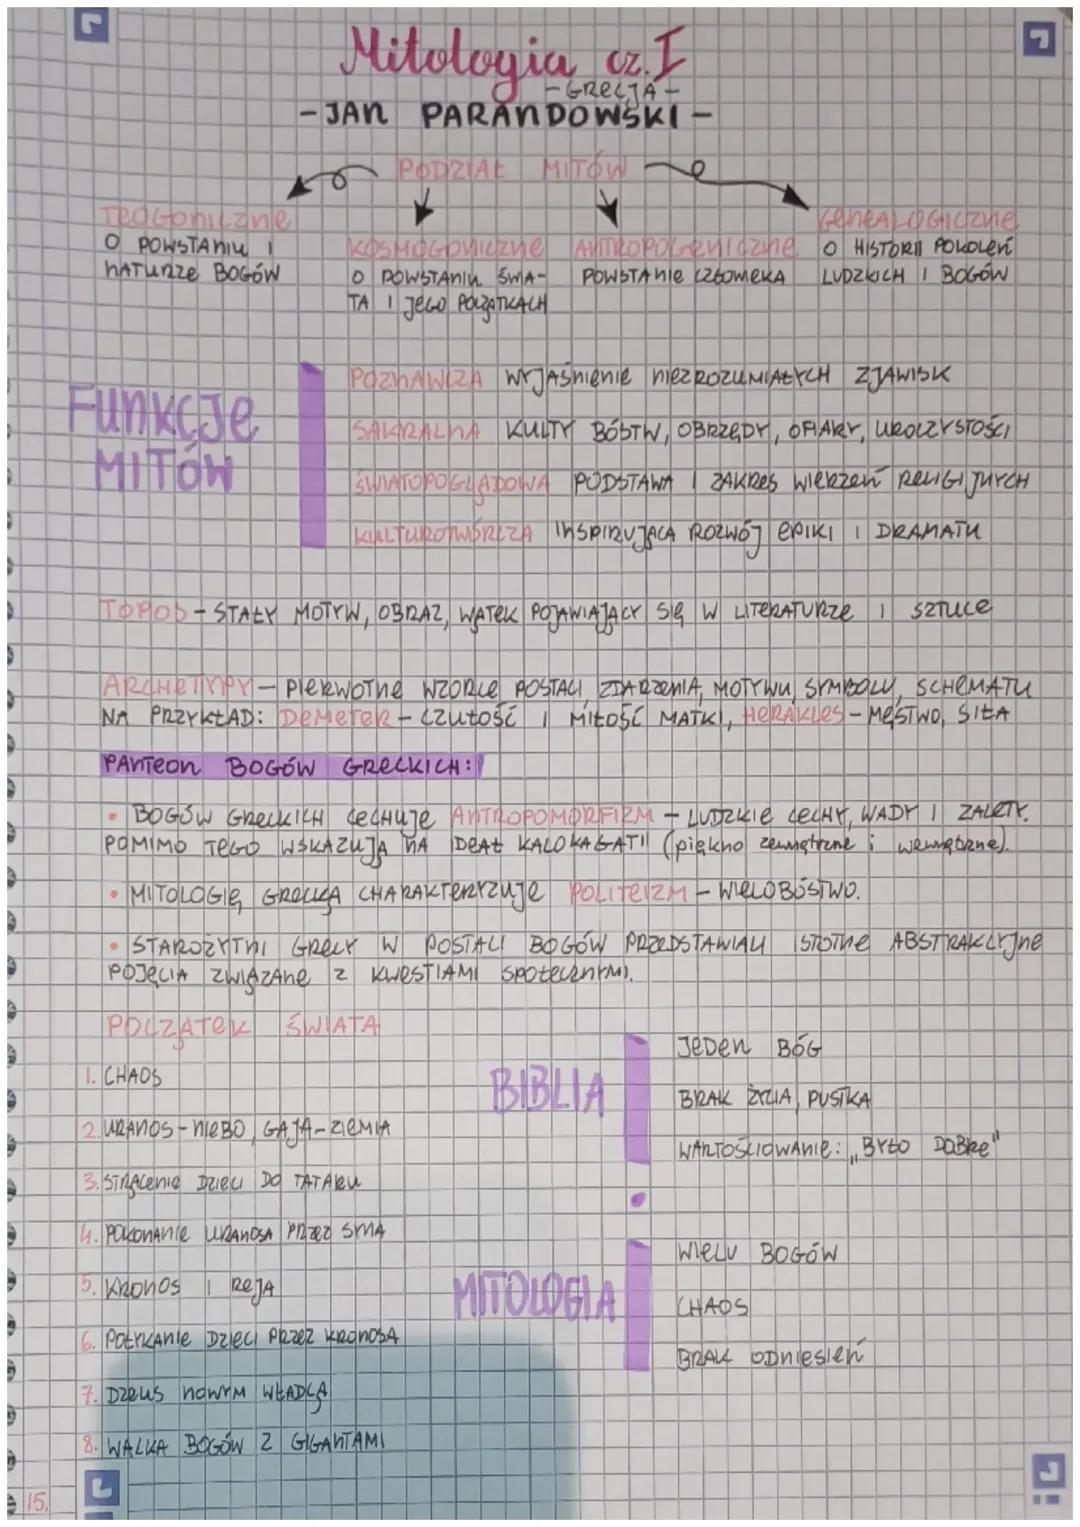 Mitologia cz. I
- GRECJA -
- JAN PARANDOWSKI -
PODZIAŁ MITÓW
TEOGONICZNE
O POWSTANIU I
NATURZE BOGÓW
KOSMOGONICZNE
O POWSTANIU ŚWIA-
TA I JEGO POCZĄTKACH
ANTROPOGENICZNE
POWSTANIE CZŁOWIEKA
GENEALOGICZNE
O HISTORII POKOLEŃ
LUDZKICH I BOGÓW
FUNKCJE
MITÓW
POZNAWCZA WYJAŚNIENIE NIEZROZUMIAŁYCH ZJAWISK
SAKRALNA KULTY BÓSTW, OBRZĘDY, OFIARY, UROCZYSTOŚCI
ŚWIATOPOGLĄDOWA PODSTAWA I ZAKRES WIERZEŃ RELIGIJNYCH
KULTUROTWÓRCZA INSPIRUJĄCA ROZWÓJ EPIKI I DRAMATU
TOPOS - STAŁY MOTYW, OBRAZ, WĄTEK POJAWIAJĄCY SIĘ W LITERATURZE I SZTUCE
ARCHETYPY - PIERWOTNE WZORCE POSTACI, ZDARZENIA, MOTYWU, SYMBOLU, SCHEMATU
NA PRZYKŁAD: DEMETER - CZUŁOŚĆ I MIŁOŚĆ MATKI, HERAKLES - MĘSTWO, SIŁA
PANTEON BOGÓW GRECKICH:
• BOGÓW GRECKICH CECHUJE ANTROPOMORFIZM - LUDZKIE CECHY, WADY I ZALETY.
POMIMO TEGO WSKAZUJĄ NA IDEAŁ KALOKAGATII (piękno zewnętrzne i wewnętrzne).
• MITOLOGIĘ GRECKĄ CHARAKTERYZUJE POLITEIZM - WIELOBÓSTWO.
• STAROŻYTNI GRECY W POSTACI BOGÓW PRZEDSTAWIALI ISTOTNE ABSTRAKCYJNE
POJĘCIA ZWIĄZANE Z KWESTIAMI SPOŁECZNYMI.
POCZĄTEK ŚWIATA
1. CHAOS
2. URANOS - NIEBO, GAJA - ZIEMIA
3. STRĄCENIE DZIECI DO TATARU
4. POKONANIE URANOSA PRZEZ SYNA
5. KRONOS I REJA
6. POŁYKANIE DZIECI PRZEZ KRONOSA
7. DZEUS NOWYM WŁADCĄ
8. WALKA BOGÓW Z GIGANTAMI
BIBLIA
JEDEN BÓG
BRAK ŻYCIA, PUSTKA
WARTOŚCIOWANIE: „BYŁO DOBRE"
MITOLOGIA
WIELU BOGÓW
CHAOS
BRAK ODNIESIEŃ
15.